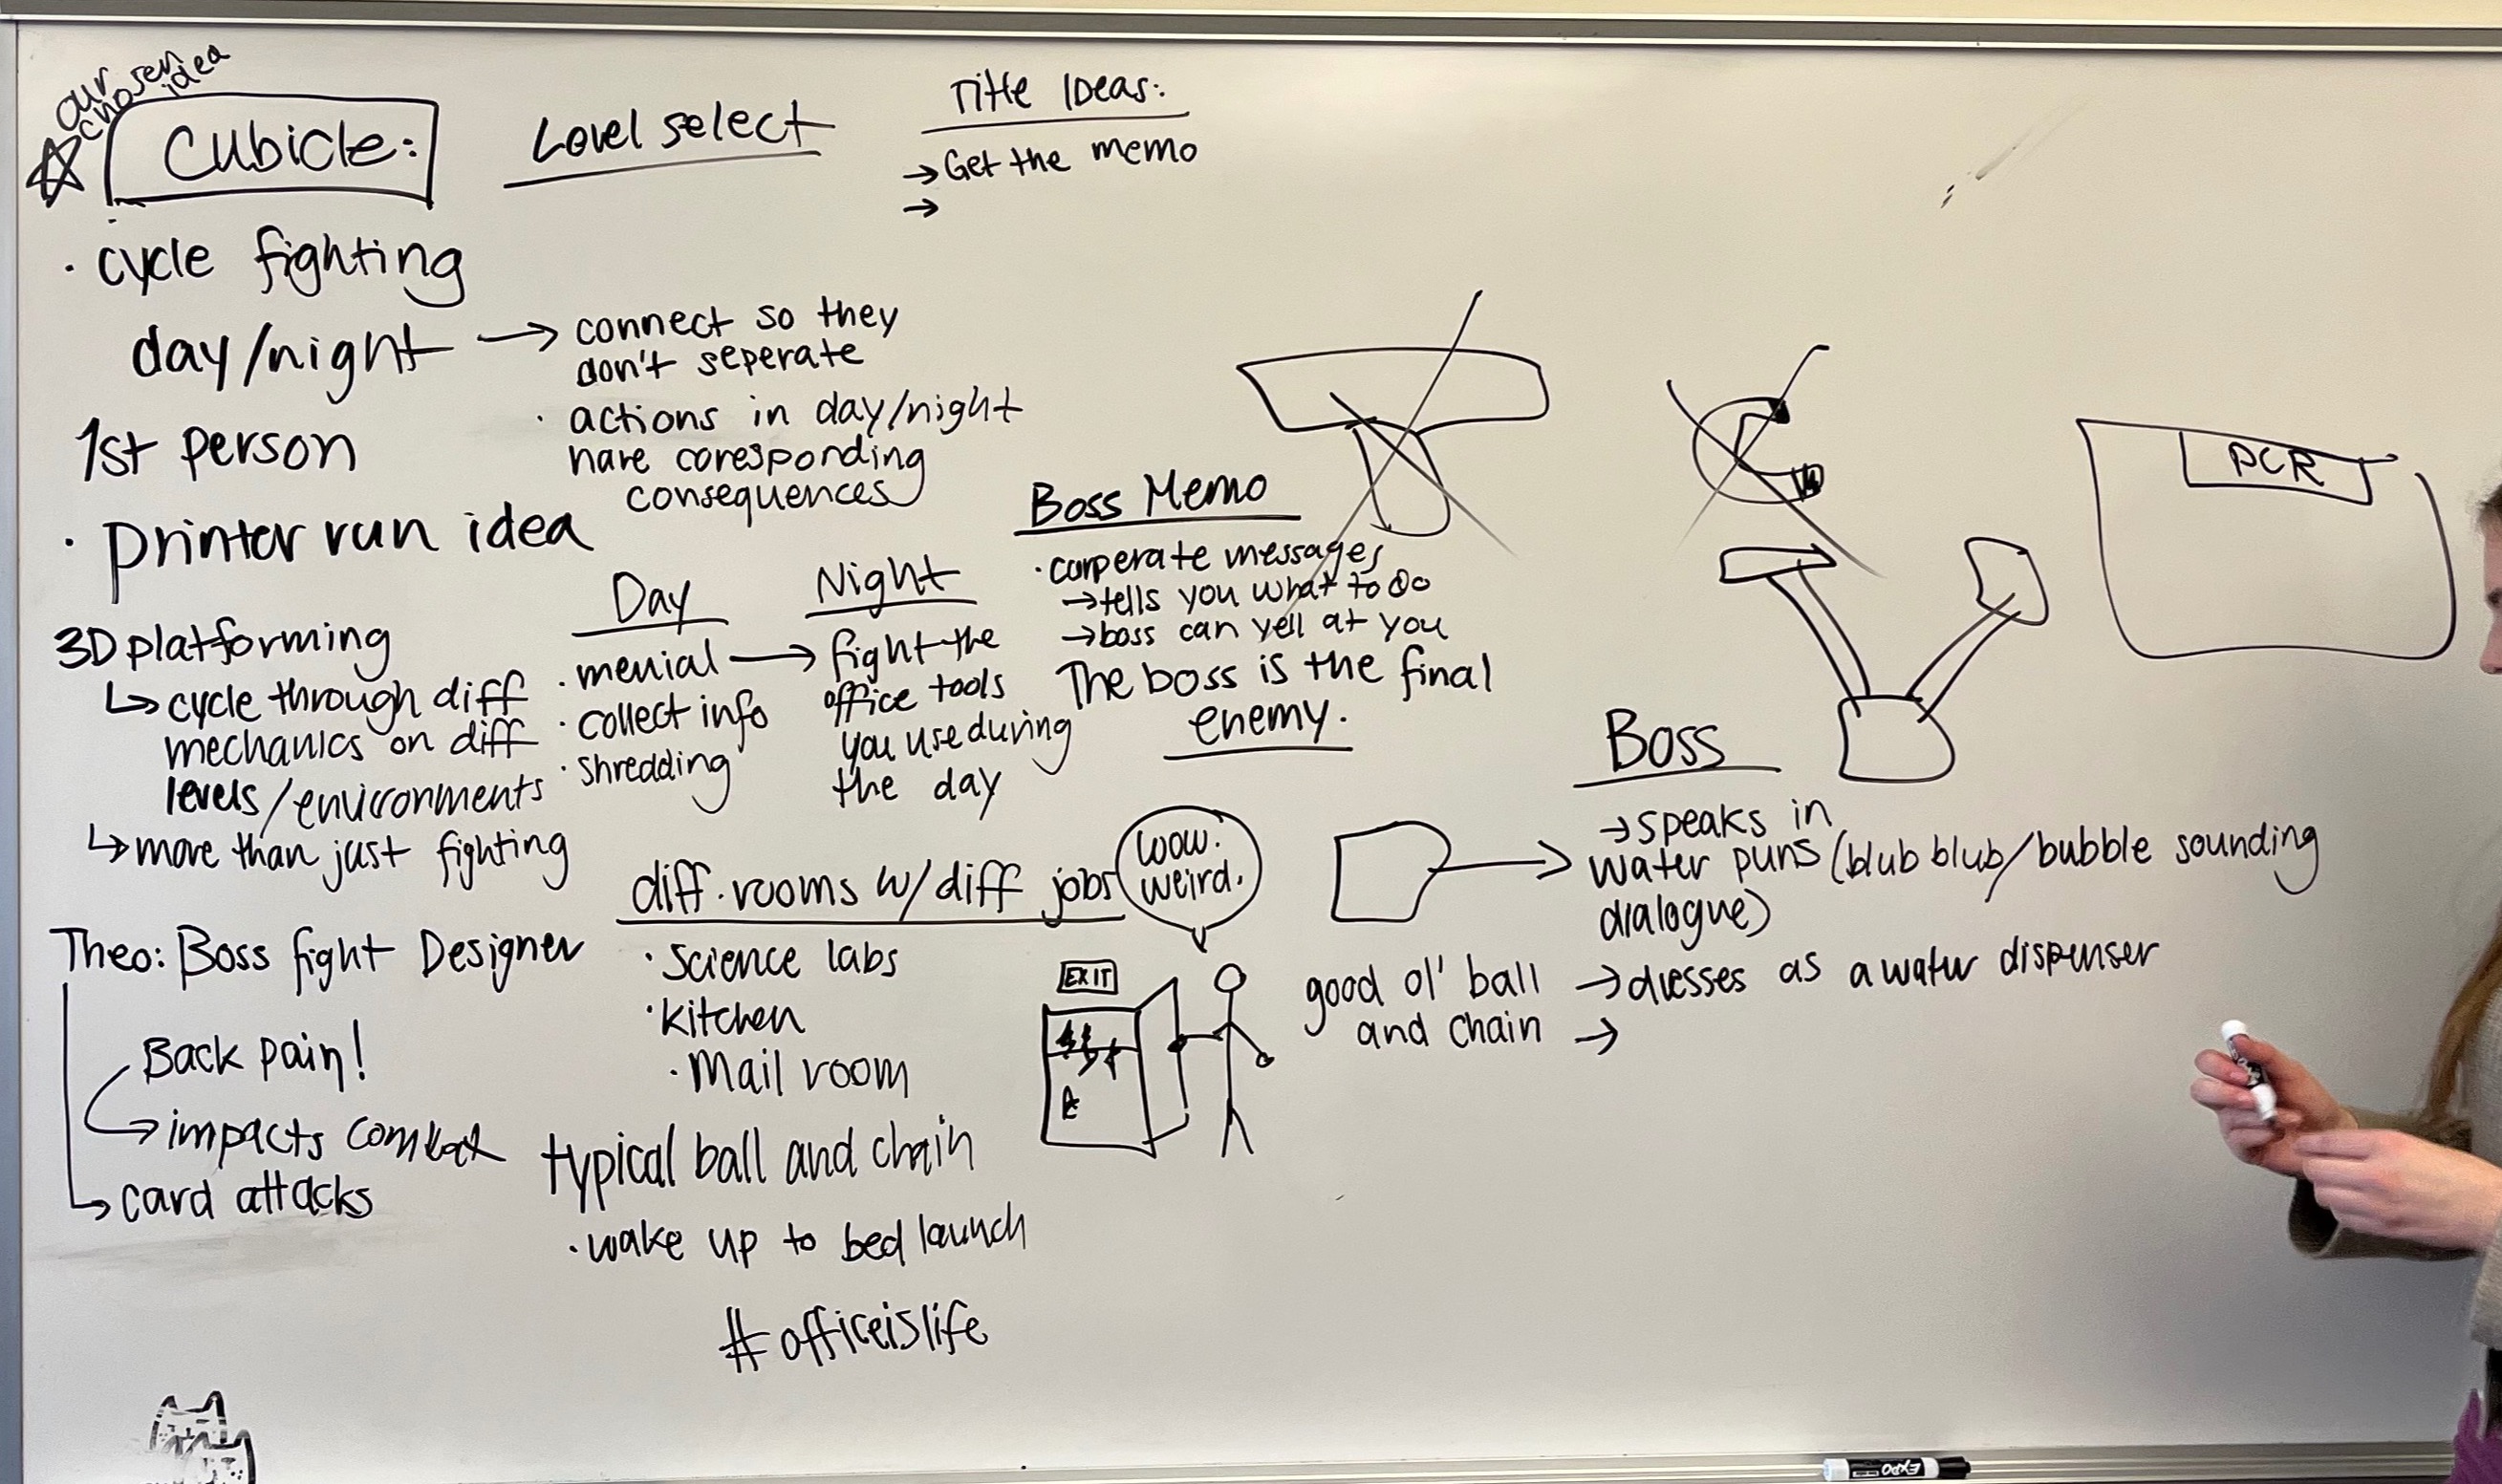 our
chosen
idea
Cubicle:
Level select
Title Ideas:
→ Get the memo
→
· cycle fighting
day/night → connect so they
don't seperate
· actions in day/night
have coresponding
consequences
1st person
· printer run idea
3D platforming
↳ cycle through diff
mechanics on diff
levels/environments
↳ more than just fighting
Day
· menial →
· collect info
· shredding
Night
fight the
office tools
you use during
the day
Boss Memo
· corperate messages
→ tells you what to do
→ boss can yell at you
The boss is the final
enemy.
PCR
Boss
→ speaks in
water puns (blub blub/bubble sounding
dialogue)
→ dresses as a water dispenser
→
good ol' ball
and chain
diff. rooms w/ diff jobs
· Science labs
· Kitchen
· Mail room
wow.
weird.
EXIT
Theo: Boss fight Designer
Back pain!
→ impacts combat
↳ card attacks
typical ball and chain
· wake up to bed launch
#officeislife
EXPO